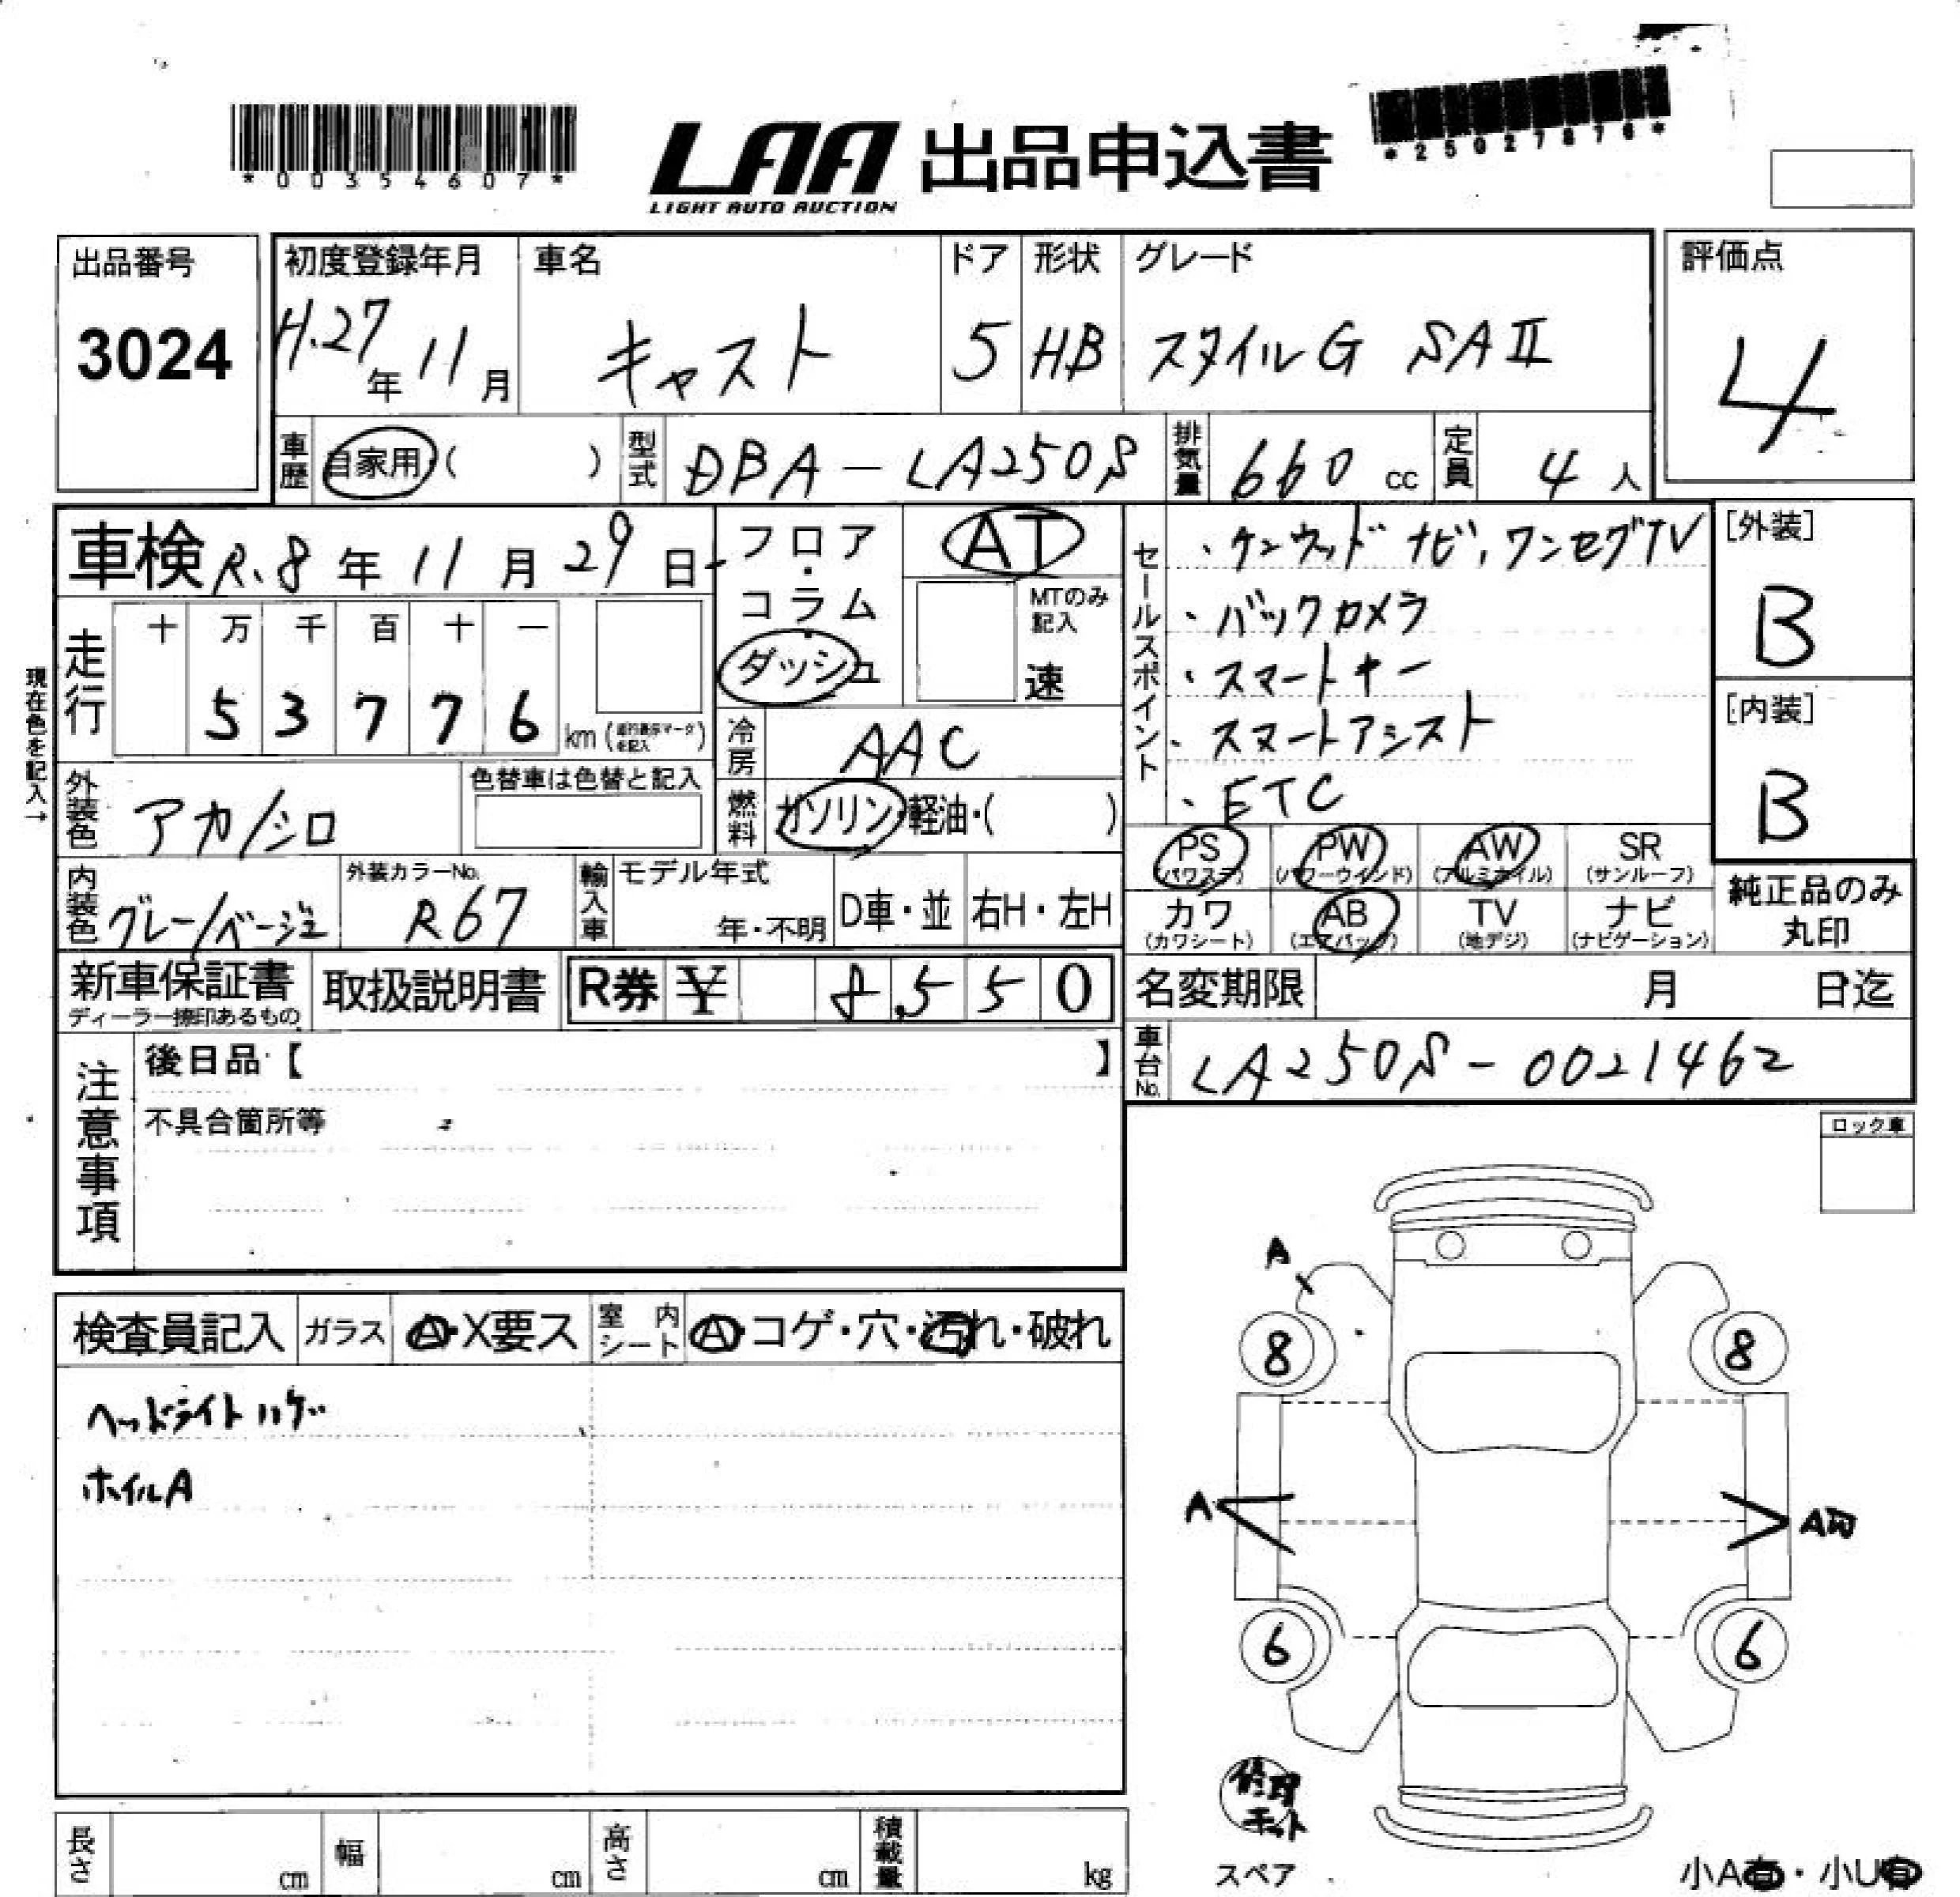 *00354607*
LAA 出品申込書
LIGHT AUTO AUCTION
*25027876*
出品番号
3024
初度登録年月
H.27年11月
車名
キャスト
ドア
5
形状
HB
グレード
スタイルG SAⅡ
評価点
4
車歴
自家用・( )
型式
DBA-LA250S
排気量
660 cc
定員
4人
車検 R.8年11月29日
フロア・コラム・ダッシュ
AT
MTのみ記入
速
セールスポイント
・ケンウッド ナビ、ワンセグTV
・バックカメラ
・スマートキー
・スマートアシスト
・ETC
[外装]
B
[内装]
B
現在色を記入→
走行
十 万 千 百 十 一
5 3 7 7 6 km
冷房
AAC
外装色
アカ/シロ
色替車は色替と記入
燃料
ガソリン・軽油・( )
PS (パワステ)
PW (パワーウインド)
AW (アルミホイル)
SR (サンルーフ)
カワ (カワシート)
AB (エアバッグ)
TV (地デジ)
ナビ (ナビゲーション)
純正品のみ
丸印
内装色
グレー/ベージュ
外装カラーNo.
R67
輸入車
モデル年式
年・不明
D車・並
右H・左H
新車保証書
ディーラー捺印あるもの
取扱説明書
R券 ¥ 8,550
名変期限 月 日迄
車台No.
LA250S-0021462
注意事項
後日品・【 】
不具合箇所等
ロック車
検査員記入
ガラス
A・X要ス
室内シート
A・コゲ・穴・汚れ・破れ
ヘッドライトハゲ
ホイルA
A
8
8
A
A凹
6
6
修理キット
スペア
長さ cm
幅 cm
高さ cm
積載量 kg
小A有・小U有